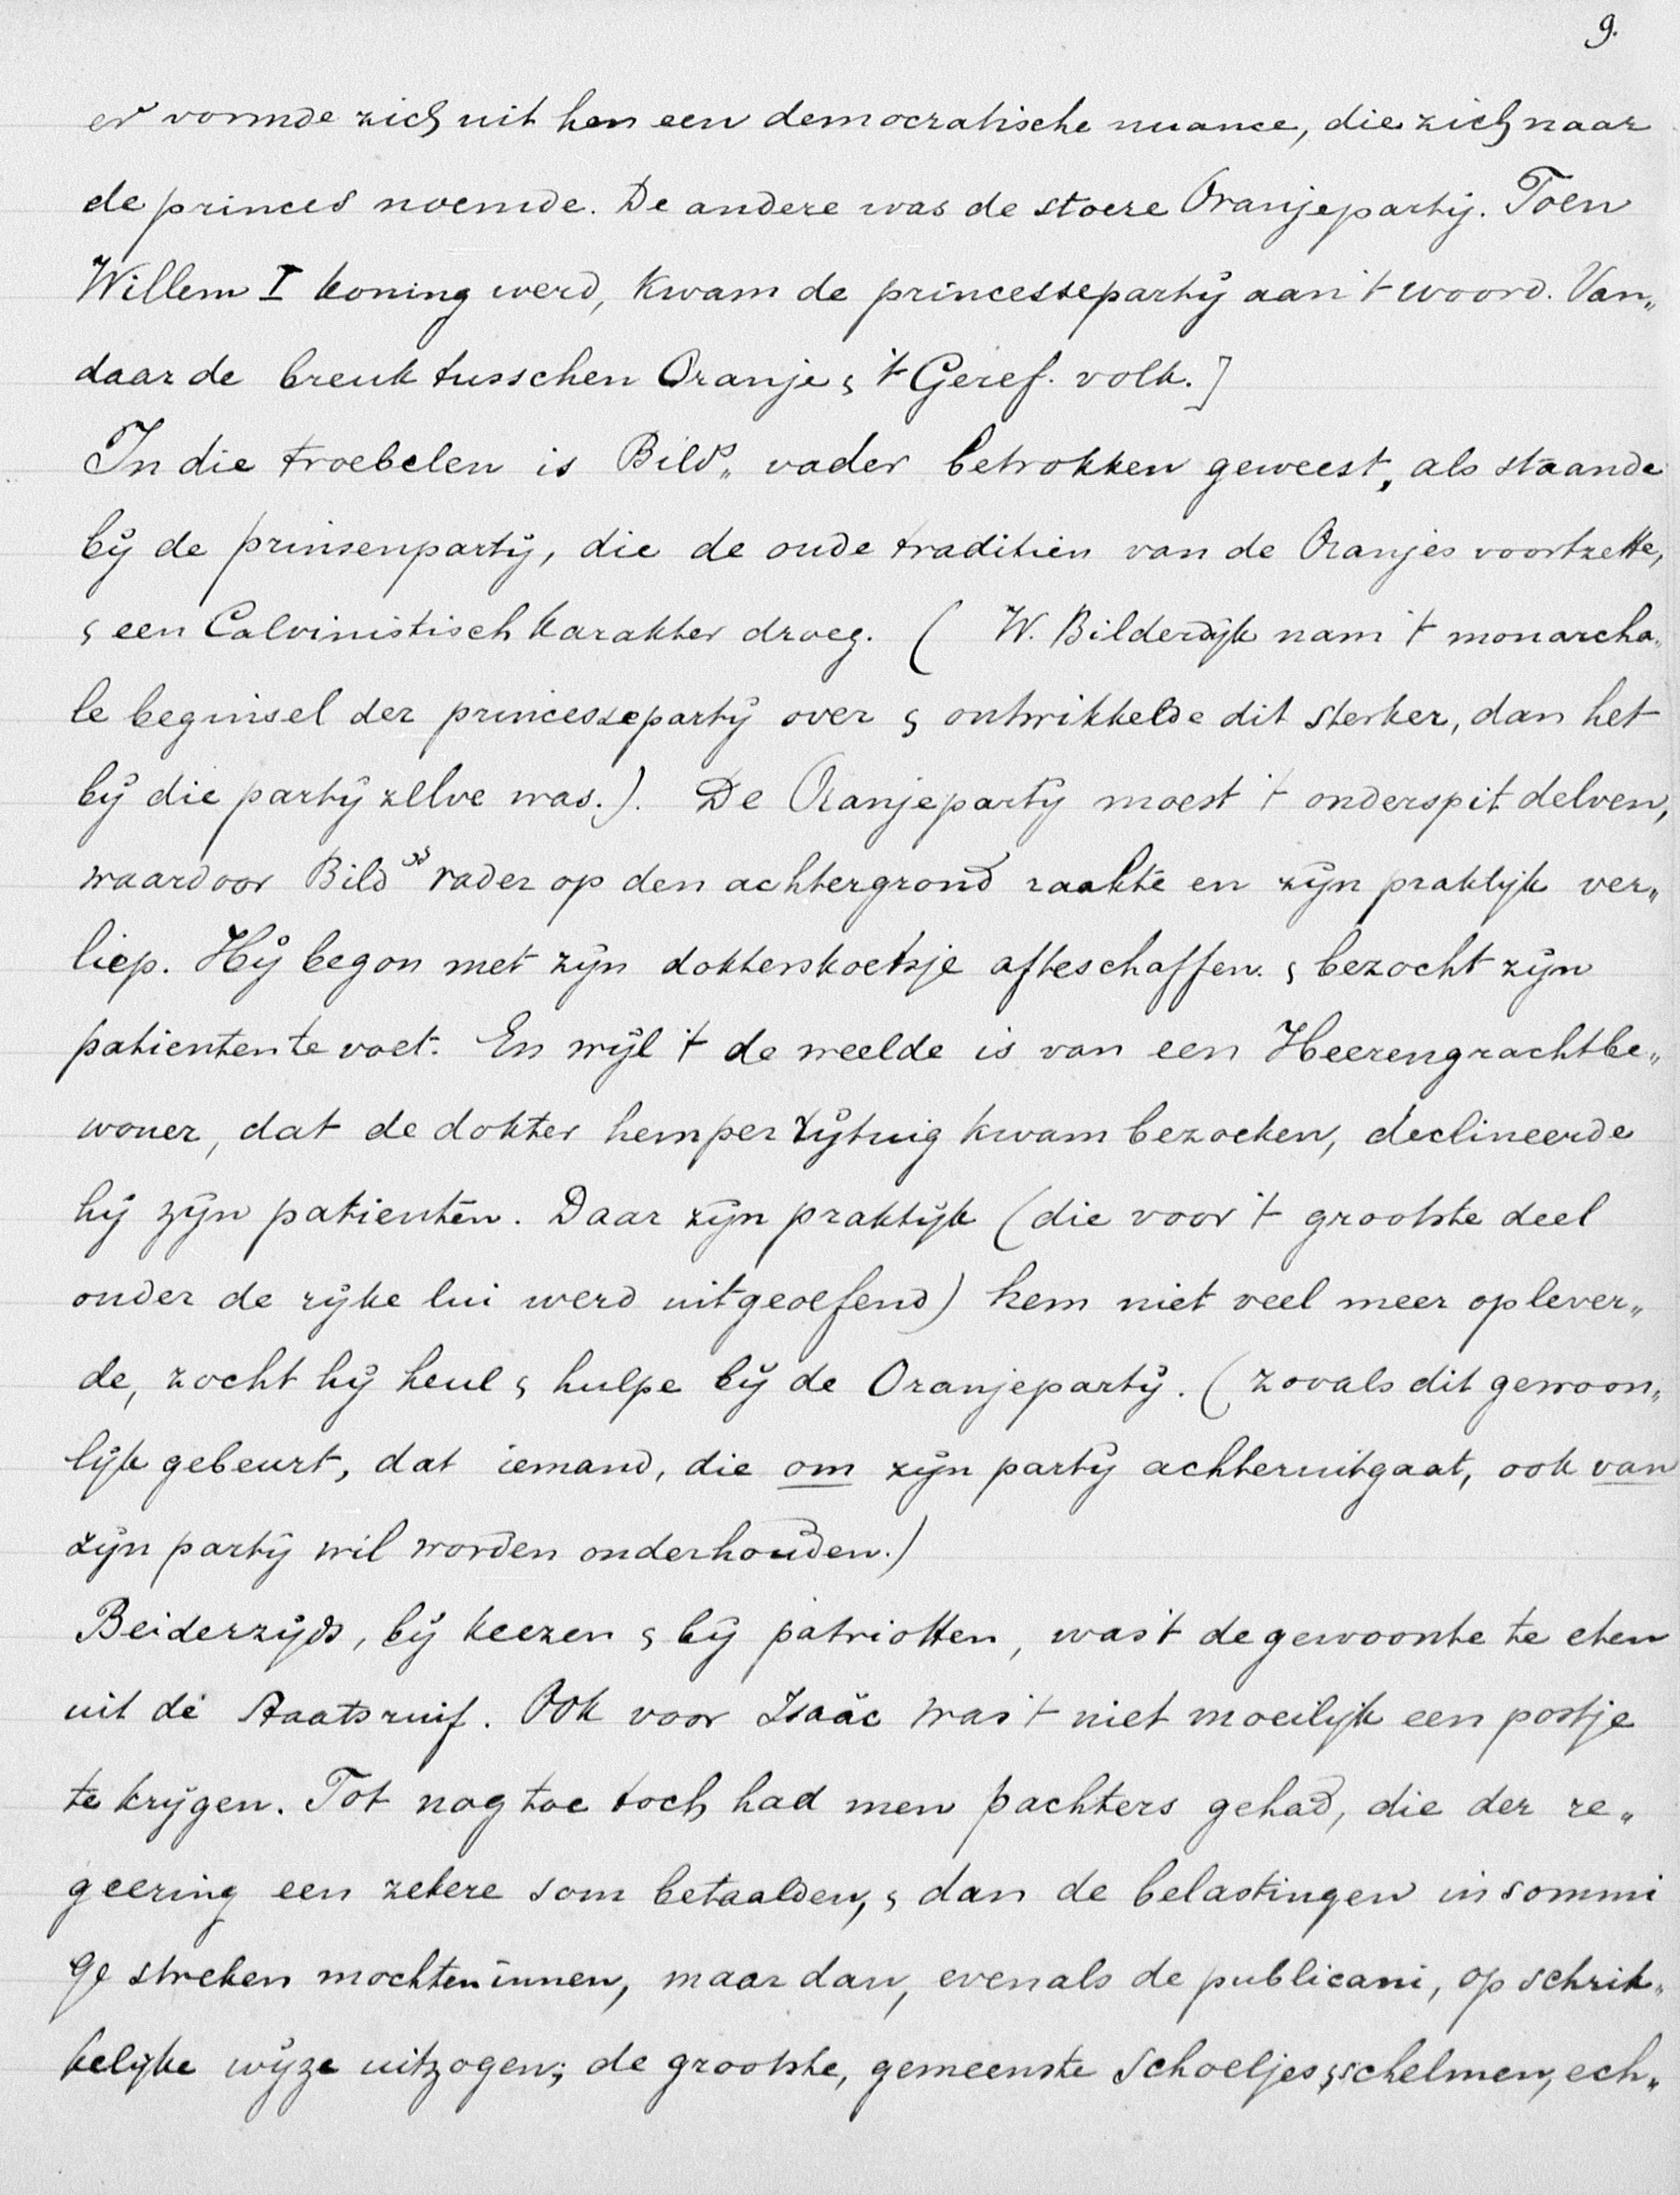 9.
er vormde zich uit hen een democratische nuance, die zich naar
de princes noemde. De andere was de stoere Oranjepartij. Toen
Willem I koning werd, kwam de princessepartij aan 't woord. Van„
daar de breuk tusschen Oranje & 't Geref. volk.]
In die troebelen is Bild⁵„ vader betrokken geweest, als staande
bij de prinsenpartij, die de oude traditien van de Oranjes voortzette,
& een Calvinistisch karakter droeg. ( W. Bilderdijk nam 't monarcha„
le beginsel der princessepartij over & ontwikkelde dit sterker, dan het
bij die partij zelve was.). De Oranjepartij moest 't onderspit delven,
waardoor Bild⁵ vader op den achtergrond raakte en zijn praktijk ver„
liep. Hij begon met zijn dokterskoetsje afteschaffen. & bezocht zijn
patienten te voet. En wijl 't de weelde is van een Heerengrachtbe„
woner, dat de dokter hem per rijtuig kwam bezoeken, declineerde
hij zijn patienten. Daar zijn praktijk (die voor 't grootste deel
onder de rijke lui werd uitgeoefend) hem niet veel meer oplever„
de, zocht hij heul & hulpe bij de Oranjepartij. (zooals dit gewoon„
lijk gebeurt, dat iemand, die om zijn partij achteruitgaat, ook van
zijn partij wil worden onderhouden.)
Beiderzijds, bij keezen & bij patriotten, was 't de gewoonte te eten
uit de Staatsruif. Ook voor Isaäc was 't niet moeilijk een postje
te krijgen. Tot nog toe toch had men pachters gehad, die der re„
geering een zekere som betaalden, & dan de belastingen in sommi
ge streken mochten innen, maar dan, evenals de publicani, op schrik„
kelijke wijze uitzogen; de grootste, gemeenste schoeljes & schelmen, ech„